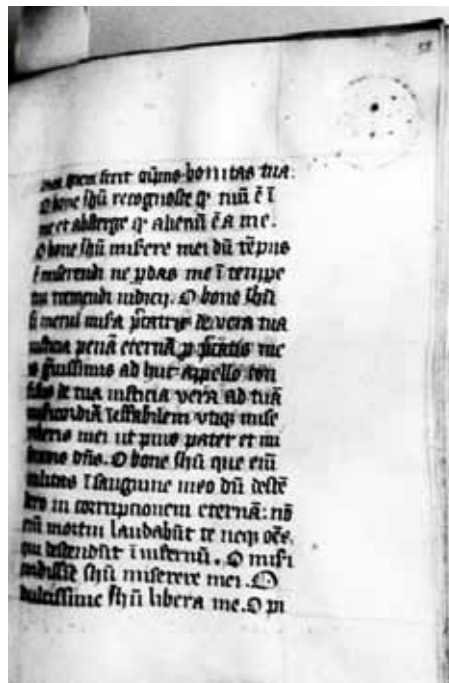 58
quem fecit optima bonitas tua:
O bone ihū recognosce qr tuū ē ī
me et absterge qr alienū ē a me.
O bone ihū misere mei dū tēpus
ē miserendi ne pdas me ī tempe
tui tremendi iudicij. O bone ihū
si merui misa pctatrix de vera tua
iusticia penā eternā p pctatis me
is gūissimis ad huc appello con
fisus de tua iusticia vera ad tuā
misericordiā ineffabilem vtiqz mise
reberis mei ut pius pater et mi
dn̄s. O bone ihū que eni
vtilitas ī sanguine meo dū descē
dero in corruptionem eternā: nō
eni mortui laudabūt te neqz oēs.
qui descendūt ī infernū. O misi
cordissīe ihū miserere mei. O
dulcissime ihū libera me. O pi